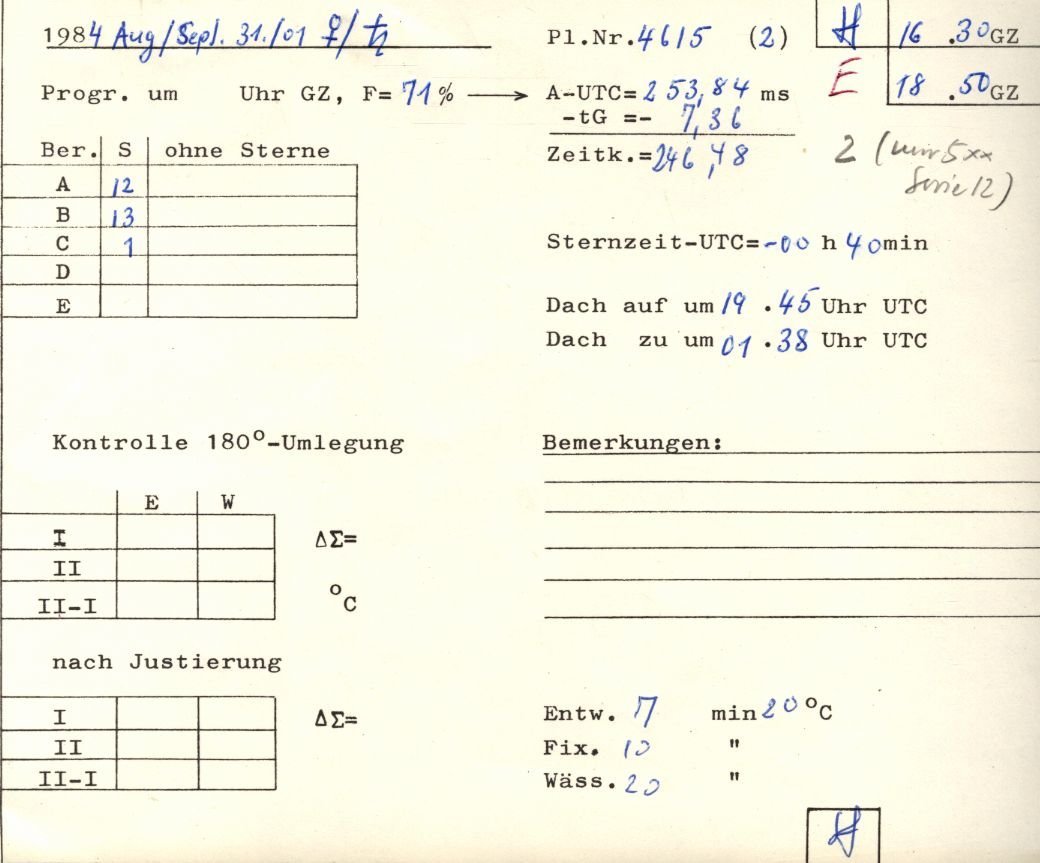 1984 Aug/Sept. 31./01 ♀/♄
Pl.Nr.4615 (2)
H 16 .30GZ
E 18 .50GZ
Progr. um Uhr GZ, F= 71%
A-UTC= 253,84 ms
-tG =- 7,36
Zeitk.=246,48
2 (nur 5xx
Serie 12)
Ber. S ohne Sterne
A 12
B 13
C 1
D
E
Sternzeit-UTC=-00 h 40min
Dach auf um 19 .45 Uhr UTC
Dach zu um 01 .38 Uhr UTC
Kontrolle 180°-Umlegung
E W
I
II
II-I
ΔΣ=
°C
Bemerkungen:
nach Justierung
I
II
II-I
ΔΣ=
Entw. 7 min 20 °C
Fix. 10 "
Wäss. 20 "
H